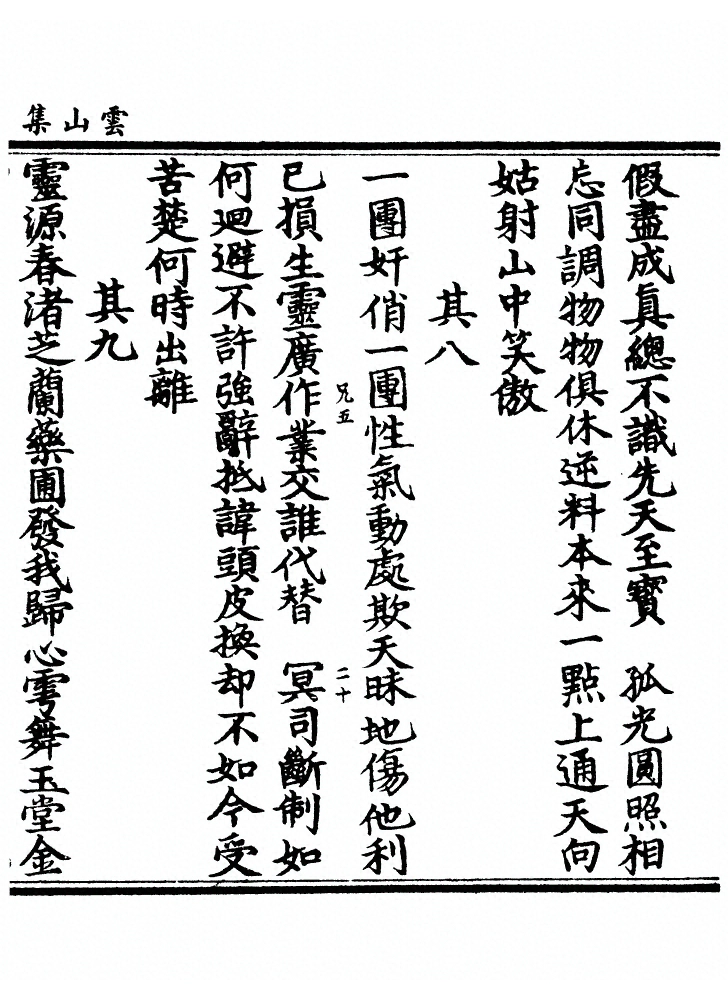 雲山集
假盡成眞總不識先天至寶　孤光圓照相
忘同調物物俱休逆料本來一點上通天向
姑射山中笑傲
其八
一團奸俏一團性氣動處欺天昧地傷他利
兄五
二十
已損生靈廣作業交誰代替　冥司斷制如
何迴避不許強辭抵諱頭皮換却不如今受
苦楚何時出離
其九
靈源春渚芝蘭藥圃發我歸心雩舞玉堂金